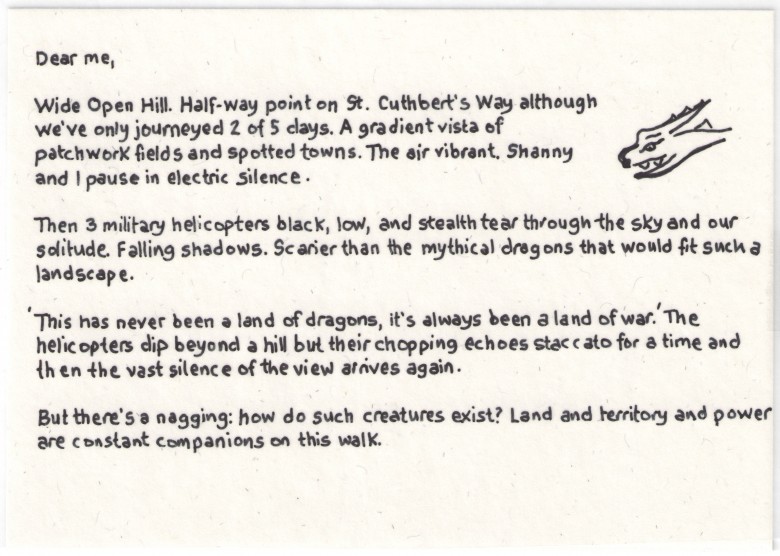 Dear me,
Wide Open Hill. Half-way point on St. Cuthbert's Way although
we've only journeyed 2 of 5 days. A gradient vista of
patchwork fields and spotted towns. The air vibrant. Shanny
and I pause in electric silence.
Then 3 military helicopters black, low, and stealth tear through the sky and our
solitude. Falling shadows. Scarier than the mythical dragons that would fit such a
landscape.
'This has never been a land of dragons, it's always been a land of war.' The
helicopters dip beyond a hill but their chopping echoes staccato for a time and
then the vast silence of the view arrives again.
But there's a nagging: how do such creatures exist? Land and territory and power
are constant companions on this walk.